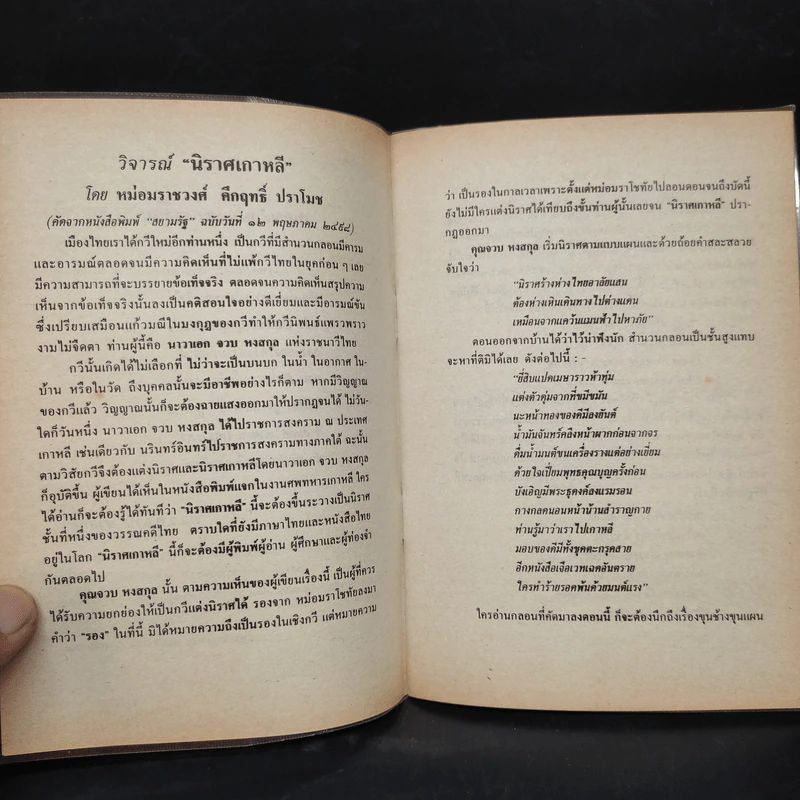 วิจารณ์ “นิราศเกาหลี”
โดย หม่อมราชวงศ์ คึกฤทธิ์ ปราโมช
(คัดจากหนังสือพิมพ์ “สยามรัฐ” ฉบับวันที่ ๑๒ พฤษภาคม ๒๔๙๘)
เมืองไทยเราได้กวีใหม่อีกท่านหนึ่ง เป็นกวีที่มีสำนวนกลอนมีคารม
และอารมณ์ตลอดจนมีความคิดเห็นที่ไม่แพ้กวีไทยในยุคก่อน ๆ เลย
มีความสามารถที่จะบรรยายข้อเท็จจริง ตลอดจนความคิดเห็นสรุปความ
เห็นจากข้อเท็จจริงนั้นลงเป็นคติสอนใจอย่างดีเยี่ยมและมีอารมณ์ขัน
ซึ่งเปรียบเสมือนแก้วมณีในมงกุฎของกวีทำให้กวีนิพนธ์แพรวพราว
งามไม่จืดตา ท่านผู้นี้คือ นาวาเอก จวบ หงสกุล แห่งราชนาวีไทย
กวีนั้นเกิดได้ไม่เลือกที่ ไม่ว่าจะเป็นบนบก ในน้ำ ในอากาศ ใน-
บ้าน หรือในวัด ถึงบุคคลนั้นจะมีอาชีพอย่างไรก็ตาม หากมีวิญญาณ
ของกวีแล้ว วิญญาณนั้นก็จะต้องฉายแสงออกมาให้ปรากฏจนได้ ไม่วัน-
ใดก็วันหนึ่ง นาวาเอก จวบ หงสกุล ได้ไปราชการสงคราม ณ ประเทศ
เกาหลี เช่นเดียวกับ นรินทร์อินทร์ไปราชการสงครามทางภาคใต้ ฉะนั้น
ตามวิสัยกวีจึงต้องแต่งนิราศและนิราศเกาหลีโดยนาวาเอก จวบ หงสกุล
ก็อุบัติขึ้น ผู้เขียนได้เห็นในหนังสือพิมพ์แจกในงานศพทหารเกาหลี ใคร
ได้อ่านก็จะต้องรู้ได้ทันทีว่า “นิราศเกาหลี” นี้จะต้องขึ้นระวางเป็นนิราศ
ชั้นที่หนึ่งของวรรณคดีไทย ตราบใดที่ยังมีภาษาไทยและหนังสือไทย
อยู่ในโลก “นิราศเกาหลี” นี้ก็จะต้องมีผู้พิมพ์ผู้อ่าน ผู้ศึกษาและผู้ท่องจำ
กันตลอดไป
คุณจวบ หงสกุล นั้น ตามความเห็นของผู้เขียนเรื่องนี้ เป็นผู้ที่ควร
ได้รับความยกย่องให้เป็นกวีแต่งนิราศได้ รองจาก หม่อมราโชทัยลงมา
คำว่า “รอง” ในที่นี้ มิได้หมายความถึงเป็นรองในเชิงกวี แต่หมายความ
ว่า เป็นรองในกาลเวลาเพราะตั้งแต่หม่อมราโชทัยไปลอนดอนจนถึงบัดนี้
ยังไม่มีใครแต่งนิราศได้เทียบถึงขั้นท่านผู้นั้นเลยจน “นิราศเกาหลี” ปรา-
กฏออกมา
คุณจวบ หงสกุล เริ่มนิราศตามแบบแผนและด้วยถ้อยคำสละสลวย
จับใจว่า
“นิราศร้างห่างไทยอาลัยแสน
ต้องห่างเหินเดินทางไปต่างแดน
เหมือนจากแคว้นแมนฟ้าไปหาภัย”
ตอนออกจากบ้านได้ว่าไว้น่าฟังนัก สำนวนกลอนเป็นชั้นสูงแทบ
จะหาที่ติมิได้เลย ดังต่อไปนี้ : -
“ยี่สิบแปดเมษาราวห้าทุ่ม
แต่งตัวคุ่มจากที่ขมีขมัน
นะหน้าทองของดีมีลงยันต์
น้ำมันจันทร์คลึงหน้าผากก่อนจากจร
ดื่มน้ำมนต์ขนเครื่องรางแต่อย่างเยี่ยม
ด้วยใจเปี่ยมพุทธคุณบุญครั้งก่อน
บังเอิญมีพระธุดงค์ลงแรมรอน
กางกลดนอนหน้าบ้านสำราญกาย
ท่านรู้มาว่าเราไปเกาหลี
มอบของดีมีทั้งชุดตะกรุดสาย
อีกหนังสือเจือเวทเฉดอันตราย
ใครทำร้ายรอดพ้นด้วยมนต์แรง”
ใครอ่านกลอนที่คัดมาลงตอนนี้ ก็จะต้องนึกถึงเรื่องขุนช้างขุนแผน